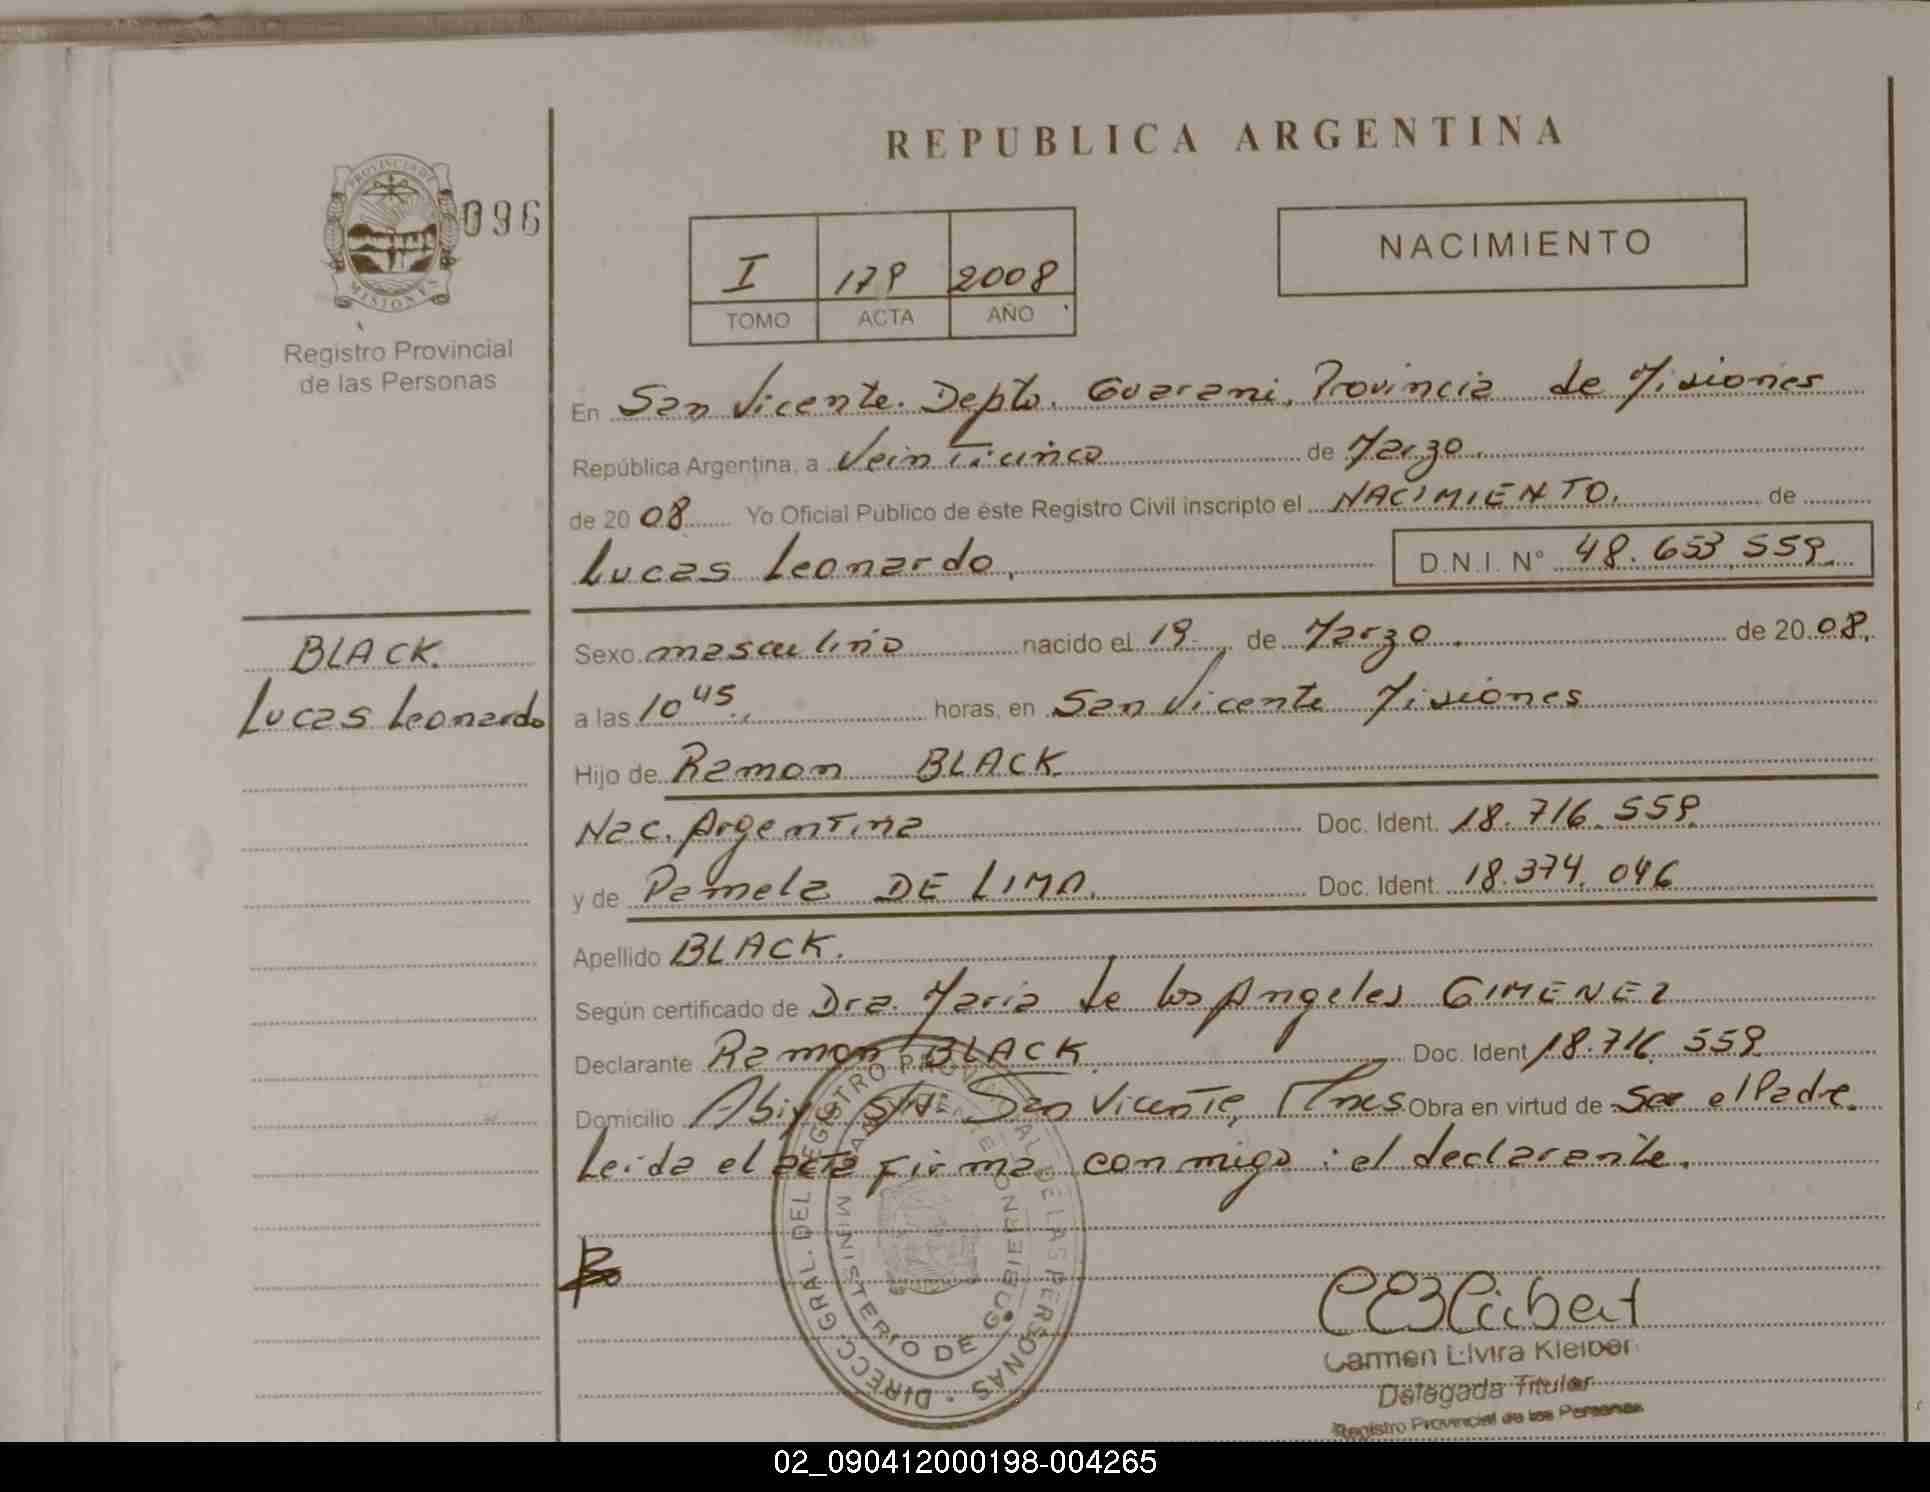 REPUBLICA ARGENTINA
PROVINCIA DE MISIONES
096
Registro Provincial
de las Personas
I 179 2008
TOMO ACTA AÑO
NACIMIENTO
En San Vicente. Depto. Guarani, Provincia de Misiones
República Argentina, a Veinticinco de Marzo.
de 2008 Yo Oficial Público de éste Registro Civil inscripto el NACIMIENTO. de
Lucas Leonardo, D.N.I. N° 48.653.559.
BLACK.
Lucas Leonardo
Sexo masculino nacido el 19 de Marzo. de 2008.
a las 10 45 horas, en San Vicente Misiones
Hijo de Ramon BLACK
Nac. Argentina Doc. Ident. 18.716.559
y de Pamela DE LIMA. Doc. Ident. 18.374.046
Apellido BLACK.
Según certificado de Dra. Maria de los Angeles GIMENEZ
Declarante Ramon BLACK Doc. Ident 18.716.559
Domicilio S/N: San Vicente, Mnes Obra en virtud de ser el Padre.
Leida el acta firma conmigo: el declarante.
DIRECC. GRAL. DEL REGISTRO PROVINCIAL DE LAS PERSONAS
MINISTERIO DE GOBIERNO
Carmen Elvira Kleiber
Delegada Titular
Registro Provincial de las Personas
02_090412000198-004265